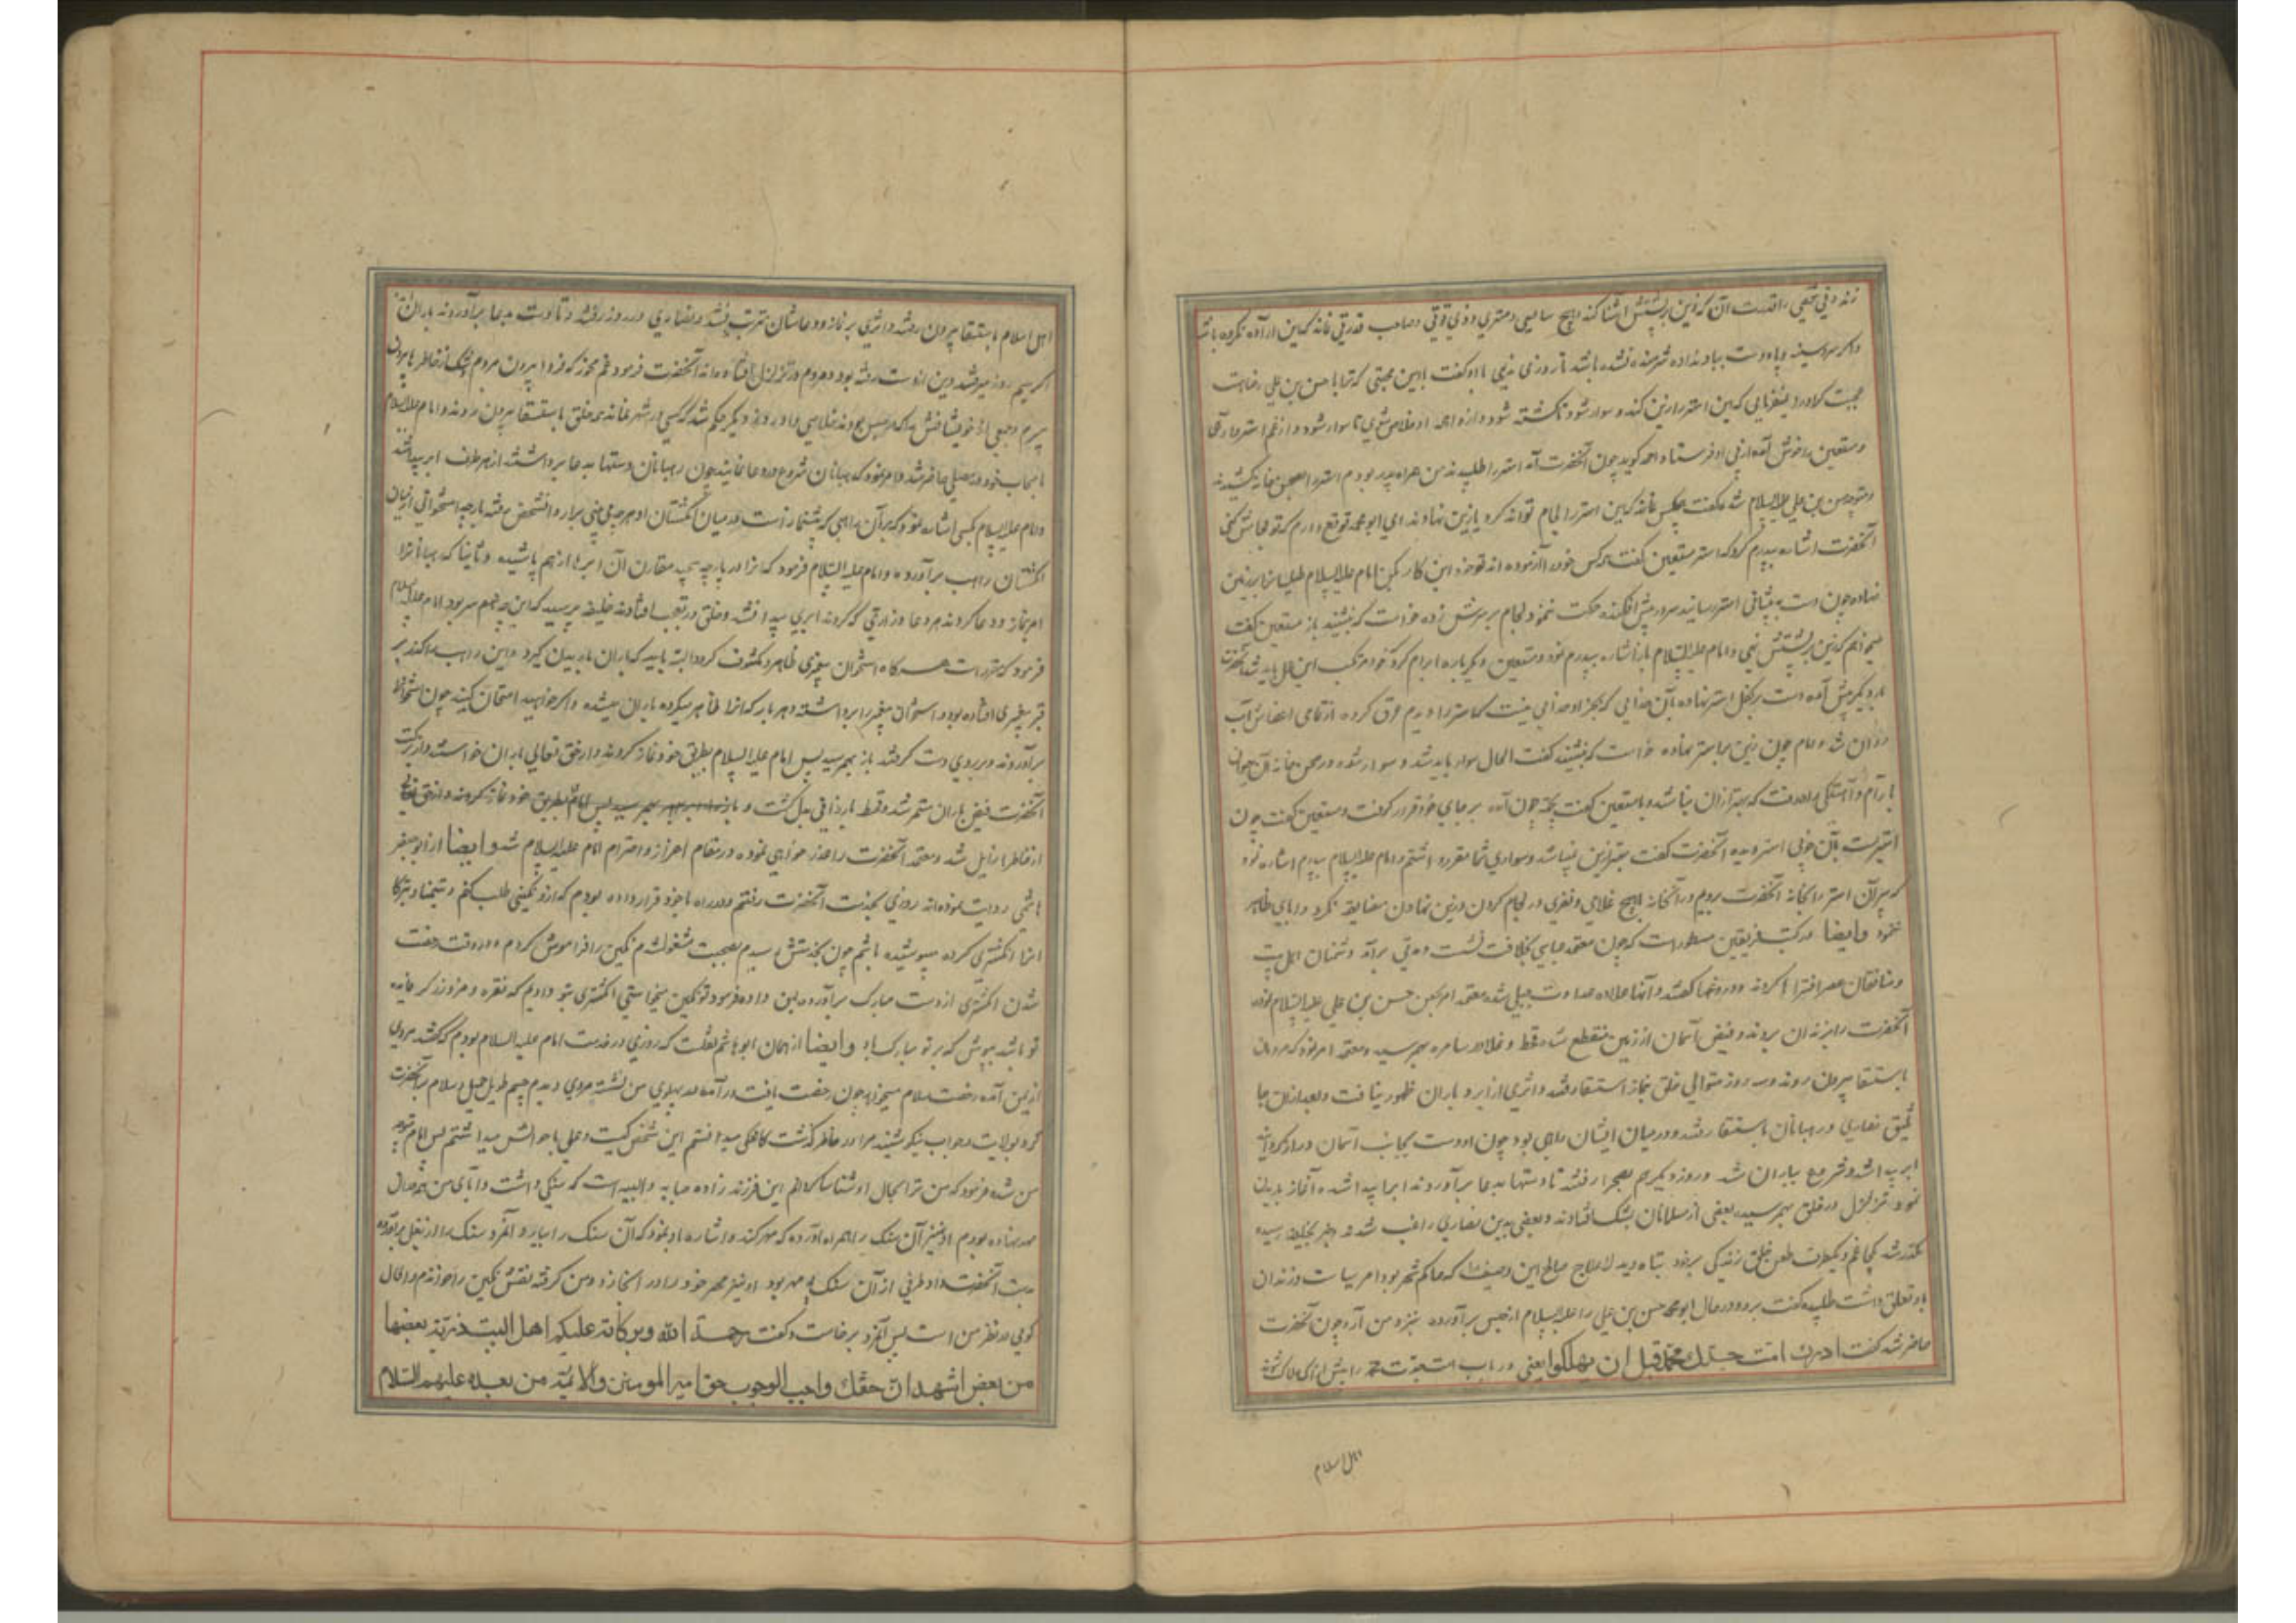 زند و فی نفسی را قدرت آن که زین بر پشتش آشنا کند و هیچ سایسی و مهتری و ذی قوتی و صاحب قدرتی نمانده که این اراده نکرده باشد
و اکر سر و سینه و پا و دست بباد نداده شرمنده نشده باشد تا روزی ندیمی با او کفت با این محبتی که ترا با حسن بن علی رضاست
عجبست که او را نمیفرمایی که این استر را زین کند و سوار شود تا کشته شود و از واهمه او خلاص شوی یا سوار شود و از غم استر بر آیی
و مستعین را خوش آمده از پی او فرستاد احمد کوید چون آنحضرت آمد استر را طلبیدند من همراه پدر بودم استر را بصحن خانه کشیدند
و متوجه حسن بن علی علیه السلام شده کفت هیچکس نمانده که این استر را لجام تواند کرد یا زین نهاد ند ای ابو محمد توقع دارم که تو لجامش کنی
آنحضرت اشاره بپدرم کرد که استر مستعین کفت هر کس خود را آزموده اند تو خود این کار بکن امام علیه السلام طیلسان بر زمین
نهاده چون دست به پیشانی استر رسانید سر در پیش افکنده حرکت ننمود و لجام بر سرش زده خواست که بنشیند باز مستعین کفت
میخواهم که زین بر پشتش نهی و امام علیه السلام باز اشاره بپدرم نمود و مستعین دیکر باره ابرام کرد که خود مرتکب این عمل باید شد آنحضرت
بار دیکر پیش آمده دست بر کفل استر نهاده بآن خدایی که بجز او خدایی نیست که استر را دیدم عرق کرده از تمامی اعضایش آب
روان شد و امام چون زین بر استر نهاده خواست که بنشیند کفت الحال سوار باید شد و سوار شده در صحن خانه آن حیوان
بآرام و آهستکی براه رفت که بهتر از آن نباشد و با مستعین کفت چون آمده بر جای خود قرار کرفت و مستعین کفت چون
استریست بآن خوبی استر ندیده آنحضرت کفت بهتر ازین نمیباشد و سواری شما مقرر داشتم و امام علیه السلام بپدرم اشاره نمود
که بر آن استر را بخانه آنحضرت بردیم و در آنخانه بهیچ غلامی و نفری در لجام کردن و زین نهادن مضایقه نکرد و ابایی ظاهر
ننمود وایضا در کتب فریقین مسطور است که چون معتمد عباسی بخلافت نشست و مدتی برآمد دشمنان اهل بیت
و منافقان عصر افتراها کردند و دروغها کفتند و آنها علاوه عداوت جبلی شده معتمد امر بحبس حسن بن علی علیه السلام نموده
آنحضرت را بزندان بردند و فیض آسمان از زمین منقطع شده قحط و غلا در سامره بهم رسید و معتمد امر نمود که مردمان
باستسقا بیرون روند و سه روز متوالی خلق بنماز استسقا رفتند و اثری از ابر و باران ظهور نیافت و بعد از آن جا
ثلیق نصاری و رهبانان باستسقا رفتند و در میان ایشان راهبی بود چون او دست بجانب آسمان دراز کرد
ابر پیدا شد و شروع بباران شد و روز دیکر هم بصحرا رفتند تا دستها بدعا برآوردند ابرها پیدا شده آغاز باریدن
نمود و تزلزل در خلق بهم رسید بعضی از مسلمانان بشک افتادند و بعضی بدین نصاری راغب شدند و خبر بخلیفه رسیده
مکدر شد یکجا غم و یکطرف طعن خلق زندکی بر خود تباه دید لا علاج صالح ابن وصیف را که حاکم شهر بود امر سیاست و زندان
باو تعلق داشت طلبیده کفت برو در حال ابو محمد حسن بن علی را علیه السلام از حبس برآورده بنزد من آر و چون آنحضرت
حاضر شد کفت ادرك امت جدك محمد قبل ان یهلکوا یعنی دریاب امت جدت محمد را پیش از آنکه هلاک شوند
اهل اسلام
اهل اسلام باستسقا بیرون رفتند و اثری بر نماز و دعاشان مترتب نشد و نصاری دو روز رفتند و تا دست بدعا برآوردند باران
اکر سیم روز میرفتند دین از دست رفته بود و مردم در تزلزل افتاده اند آنحضرت فرمود غم مخور که فردا بیرون میروم و شک از خاطرها بیرون
میبرم و جمعی از خویشانش را که در حبس بودند خلاصی داد و روز دیکر حکم شد که کسی در شهر نماند و همه خلق باستسقا بیرون روند و امام علیه السلام
با اصحاب خود در مصلی حاضر شد و امر نمود که رهبانان شروع در دعا نمایند چون رهبانان دستها بدعا برداشتند از هر طرف ابر پیدا شد
و امام علیه السلام بکسی اشاره نمود که بر آن راهبی که پیشنماز است در میان انکشتان او هر چه می بینی بردار و آنشخص رفته پارچه استخوانی از میان
انکشتان راهب برآورده و امام علیه السلام فرمود که آنرا در پارچه پیچید مقارن آن ابرها از هم پاشیده و ثانیا که رهبانانرا
امر بنماز و دعا کردند هر دعا و زاری که کردند ابری پیدا نشد و خلق در تعجب افتادند خلیفه پرسید که این چه سر بود امام علیه السلام
فرمود که مقرر است هر کاه استخوان پیغمبری ظاهر و مکشوف کردد البته باید که باران باریدن کیرد و این راهب را کذر بر
قبر پیغمبری افتاده بود و استخوان پیغمبر را برداشته و هر بار که آنرا ظاهر میکرده باران میشده و اکر خواهید امتحان کنید چون استخوانرا
برآوردند و بر روی دست کرفتند باز بهم رسید پس امام علیه السلام بطریق خود نماز کردند و از حق تعالی باران خواستند و از برکت
آنحضرت فیض باران مستمر شد و قحط بارزانی بدل کشت و باز
از خاطرها زایل شد و معتمد آنحضرت را عذر خواهی نموده در مقام اعزاز و احترام امام علیه السلام شد وایضا از ابو جعفر
هاشمی روایت نموده اند روزی بخدمت آنحضرت رفتم و در راه با خود قرار داده بودم که از او نکینی طلب کنم و تیمنا و تبرکا
آنرا انکشتری کرده میپوشیده باشم چون بخدمتش رسیدم بصحبت مشغول شدم نکین را فراموش کردم و در وقت رخصت
شدن انکشتری از دست مبارک برآورده بمن داده فرمود تو نکین میخواستی انکشتری بتو دادیم که نقره و مزد زرکر فایده
تو باشد بپوش که بر تو مبارکباد وایضا از همان ابو هاشم نقلست که روزی در خدمت امام علیه السلام بودم که کفتند مردی
از یمن آمده رخصت سلام میخواهد چون رخصت یافت و در آمده در پهلوی من نشست مردی دیدم جسیم طویل جمیل و سلام بآنحضرت
کرد بولایت و جواب نیکو شنید مرا در خاطر کذشت کاشکی میدانستم این شخص کیست و علمی باحوالش میداشتم پس امام متوجه
من شده فرمود که من ترا بحال او شناسا کردانم این فرزند زاده حبابه والبیه است که سنکی داشت و آبای من بر آن
مهر نهاده بودیم او نیز آن سنک را همراه آورده که مهر کند و اشاره باو نمود که آن سنک را بیار و آنمرد سنک را از بغل برآورده
بدست آنحضرت داد طرفی از آن سنک بی مهر بود او نیز مهر خود را در آنجا زد و من کرفته نقش نکین را خواندم و الحال
کویی در نظر من است پس آنمرد برخاست و کفت رحمة الله وبرکاته علیکم اهل البیت ذریة بعضها
من بعض اشهد ان حقك واجب الوجوب حق امیر المومنین والائمة من بعده علیهم السلام